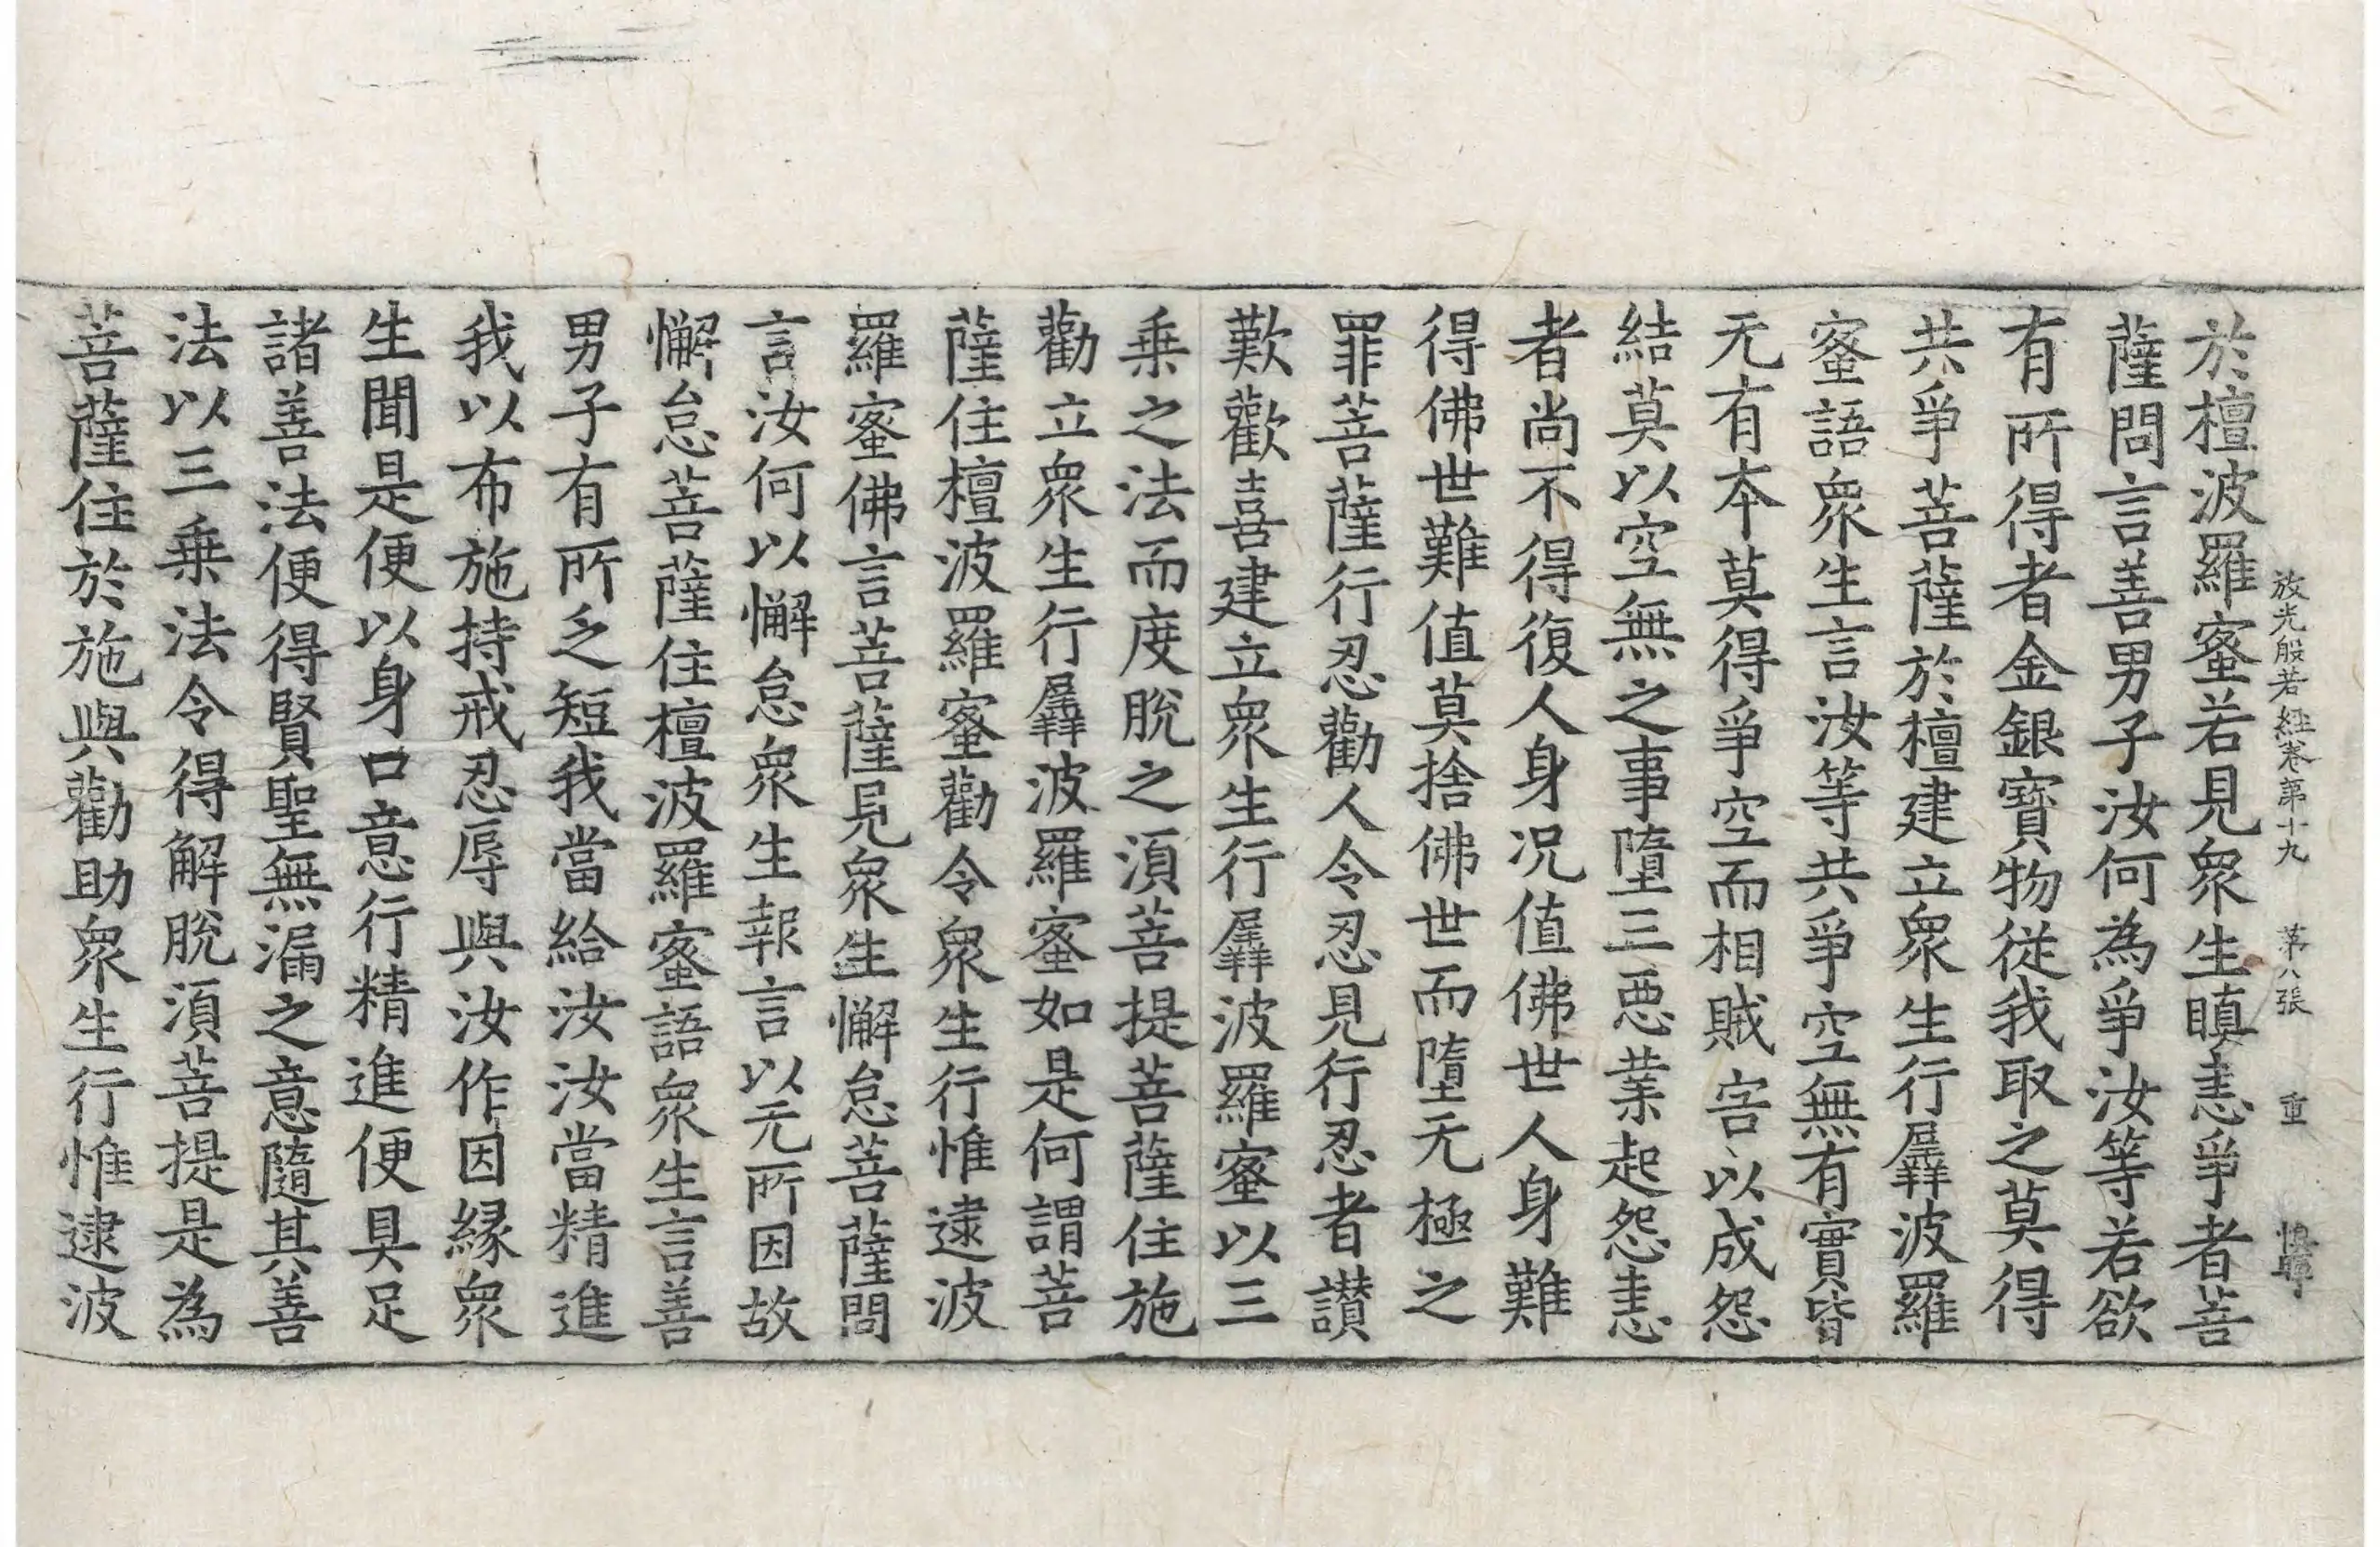 放光般若經卷第十九 第八張 重
於檀波羅蜜若見衆生瞋恚爭者菩
薩問言善男子汝何為爭汝等若欲
有所得者金銀寶物從我取之莫得
共爭菩薩於檀建立衆生行羼波羅
蜜語衆生言汝等共爭空無有實皆
无有本莫得爭空而相賊害以成怨
結莫以空無之事墮三惡業起怨恚
者尚不得復人身況值佛世人身難
得佛世難值莫捨佛世而墮无極之
罪菩薩行忍勸人令忍見行忍者讃
歎歡喜建立衆生行羼波羅蜜以三
乗之法而度脫之湏菩提菩薩住施
勸立衆生行羼波羅蜜如是何謂菩
薩住檀波羅蜜勸令衆生行惟逮波
羅蜜佛言菩薩見衆生懈怠菩薩問
言汝何以懈怠衆生報言以无所因故
懈怠菩薩住檀波羅蜜語衆生言善
男子有所乏短我當給汝汝當精進
我以布施持戒忍辱與汝作因縁衆
生聞是便以身口意行精進便具足
諸善法便得賢聖無漏之意隨其善
法以三乗法令得解脫湏菩提是為
菩薩住於施與勸助衆生行惟逮波